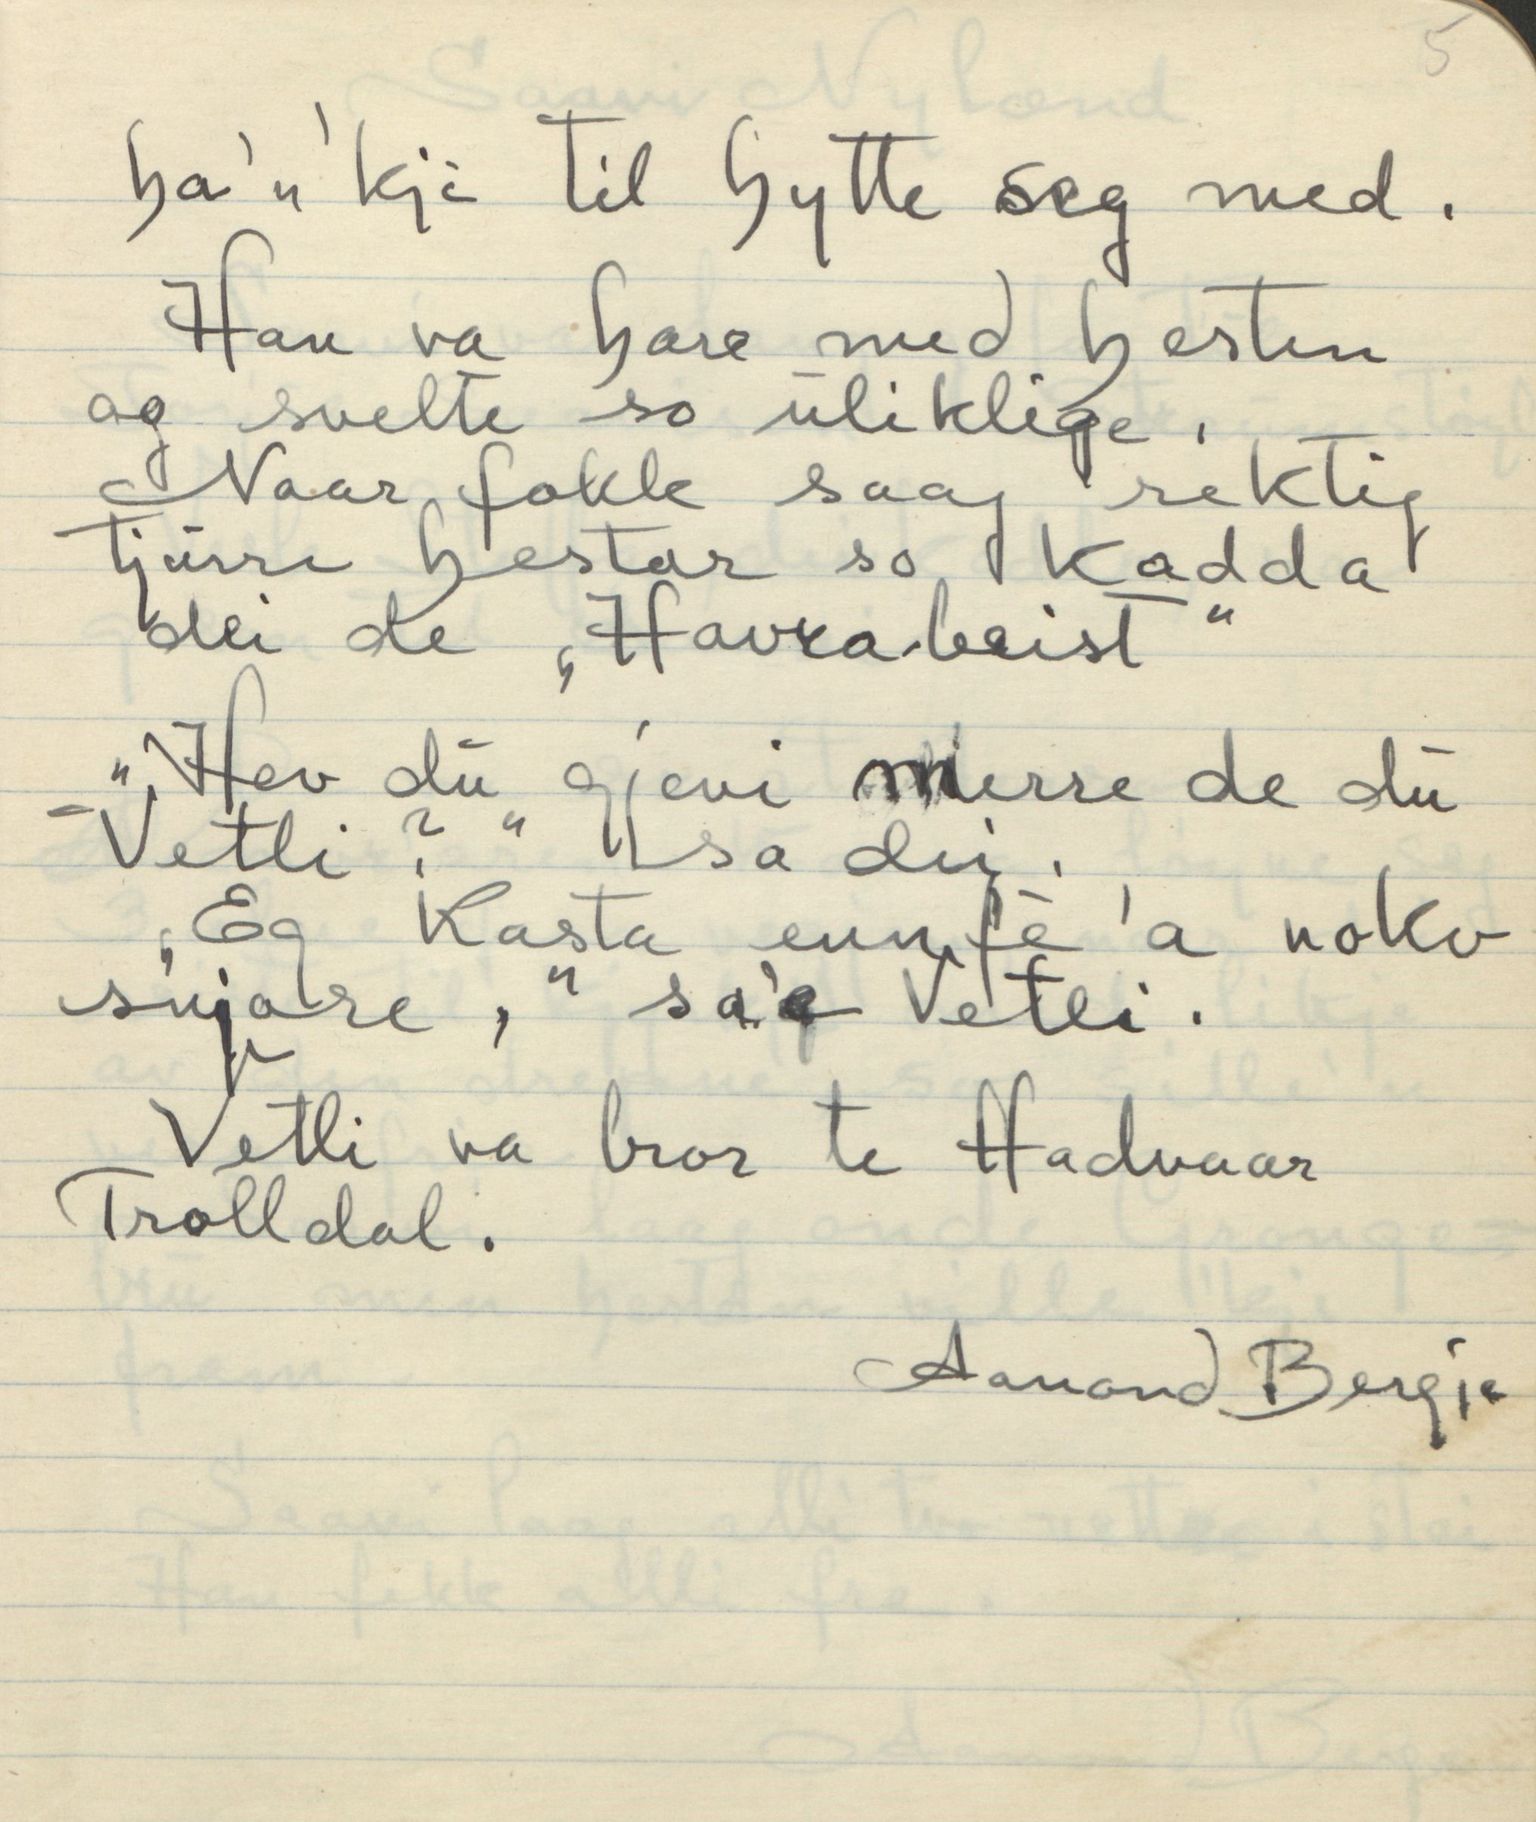 5
ha'n'kji til hytte seg med.
Han va hare med hesten
og svelte so ūliklige.
Naar fokk saag rektig
tjūrre hestar so kadda
dei de „Havrabeist"
"Hev dū gjevi merre de dū
Vetli?" sa dei.
„Eg kasta eunfè 'a nokv
snjore," sa'e Vetli.
Vetli va bror te Hadvaar
Trolldal.
Aanond Bergje